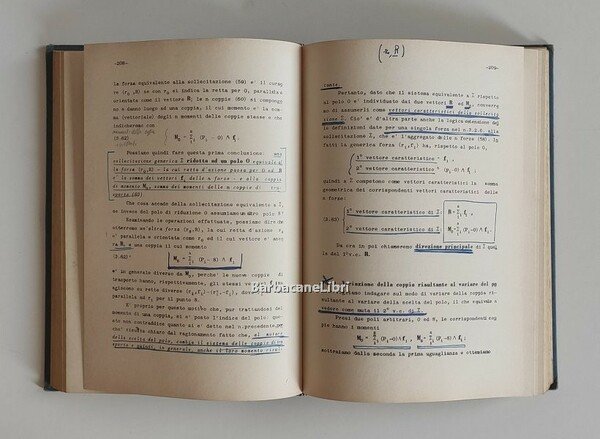 -208-
la forza equivalente alla sollecitazione (59) e' il curso-
re (r₀,R) se con r₀ si indica la retta per O, parallela ed
orientata come il vettore R; le n coppie (60) si compongo-
no a danno luogo ad una coppia, il cui momento e' la som-
ma (vettoriale) degli n momenti delle coppie stesse e che
indicheremo con
(3.62) M₀ = Σ (Pᵢ - O) ∧ fᵢ
Possiamo quindi fare questa prima conclusione: una
sollecitazione generica Σ ridotta ad un polo O equivale al-
la forza (r₀,R) - la cui retta d'azione passa per O ed R
e' la somma dei vettori fᵢ delle n forze - e alla coppia
di momento M₀, somma dei momenti delle n coppie di tra-
sporto (60)
Che cosa accade della sollecitazione equivalente a Σ,
se invece del polo di riduzione O assumiamo un altro polo B?
Esaminando le operazioni effettuate, possiamo dire che
otterremo un'altra forza (r_B,R), la cui retta d'azione r_B
e' parallela e orientata come r₀ ed il cui vettore e' anco-
ra R, e una coppia il cui momento
(3.62)' M_B = Σ (Pᵢ-B) ∧ fᵢ
e' in generale diverso da M₀, perche' le nuove coppie di
trasporto hanno, rispettivamente, gli stessi vettori
BarbacaneLibri
E' proprio per questo motivo che, pur trattandosi del
momento di una coppia, si e' posto l'indice del polo: que-
sto non contraddice quanto si e' detto nel n.precedente,per-
che' risulta chiaro dal ragionamento fatto che, al variare
della scelta del polo, cambia il sistema delle coppie di tra-
sporto e quindi, in generale, anche il loro momento risul-
(r, R)
-209-
tante.
Pertanto, dato che il sistema equivalente a Σ rispetto
al polo O e' individuato dai due vettori R ed M₀, converre-
mo di assumerli come vettori caratteristici della sollecita-
zione Σ. Cio' e' d'altra parte anche la logica estensione del-
le definizioni date per una singola forza nel n.2.2.6. alla
sollecitazione Σ, che e' l'aggregato delle n forze (58). In-
fatti la generica forza (rᵢ,fᵢ) ha, rispetto al polo O,
1° vettore caratteristico fᵢ ,
2° vettore caratteristico (Pᵢ-O) ∧ fᵢ
quindi a Σ competono come vettori caratteristici la somma
geometrica dei corrispondenti vettori caratteristici delle
n forze:
(3.63) 1° vettore caratteristico di Σ: R = Σ fᵢ ,
2° vettore caratteristico di Σ: M₀ = Σ (Pᵢ-O) ∧ fᵢ
Da ora in poi chiameremo direzione principale di Σ
quella del 1°v.c. R.
Variazione della coppia risultante al variare del po
indagare sul modo di variare della coppia ri-
sultante al variare della scelta del polo, il che equivale a
vedere come muta il 2° v.c. di Σ.
Presi due poli arbitrari, O ed B, le corrispondenti cop-
pie hanno i momenti
M₀ = Σ (Pᵢ-O) ∧ fᵢ , M_B = Σ (Pᵢ-B) ∧ fᵢ ;
sottraiamo dalla seconda la prima uguaglianza e otteniamo